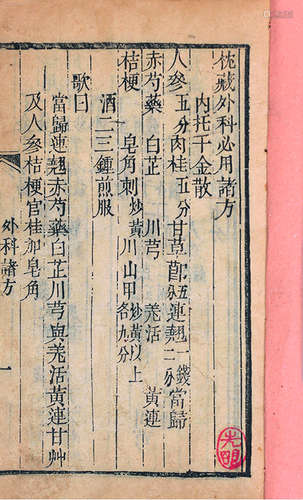 枕藏外科必用諸方
内托千金散
人參五分肉桂五分甘草莭五分連翹一錢二分當歸
赤芍藥 白芷 川芎 羌活 黃連
桔梗 皂角刺炒黃 川山甲炒黃以上各九分
酒二三鍾煎服
歌曰
當歸連翹赤芍藥白芷川芎羌活黃連甘艸
及人參桔梗官桂加皂角
外科諸方
一